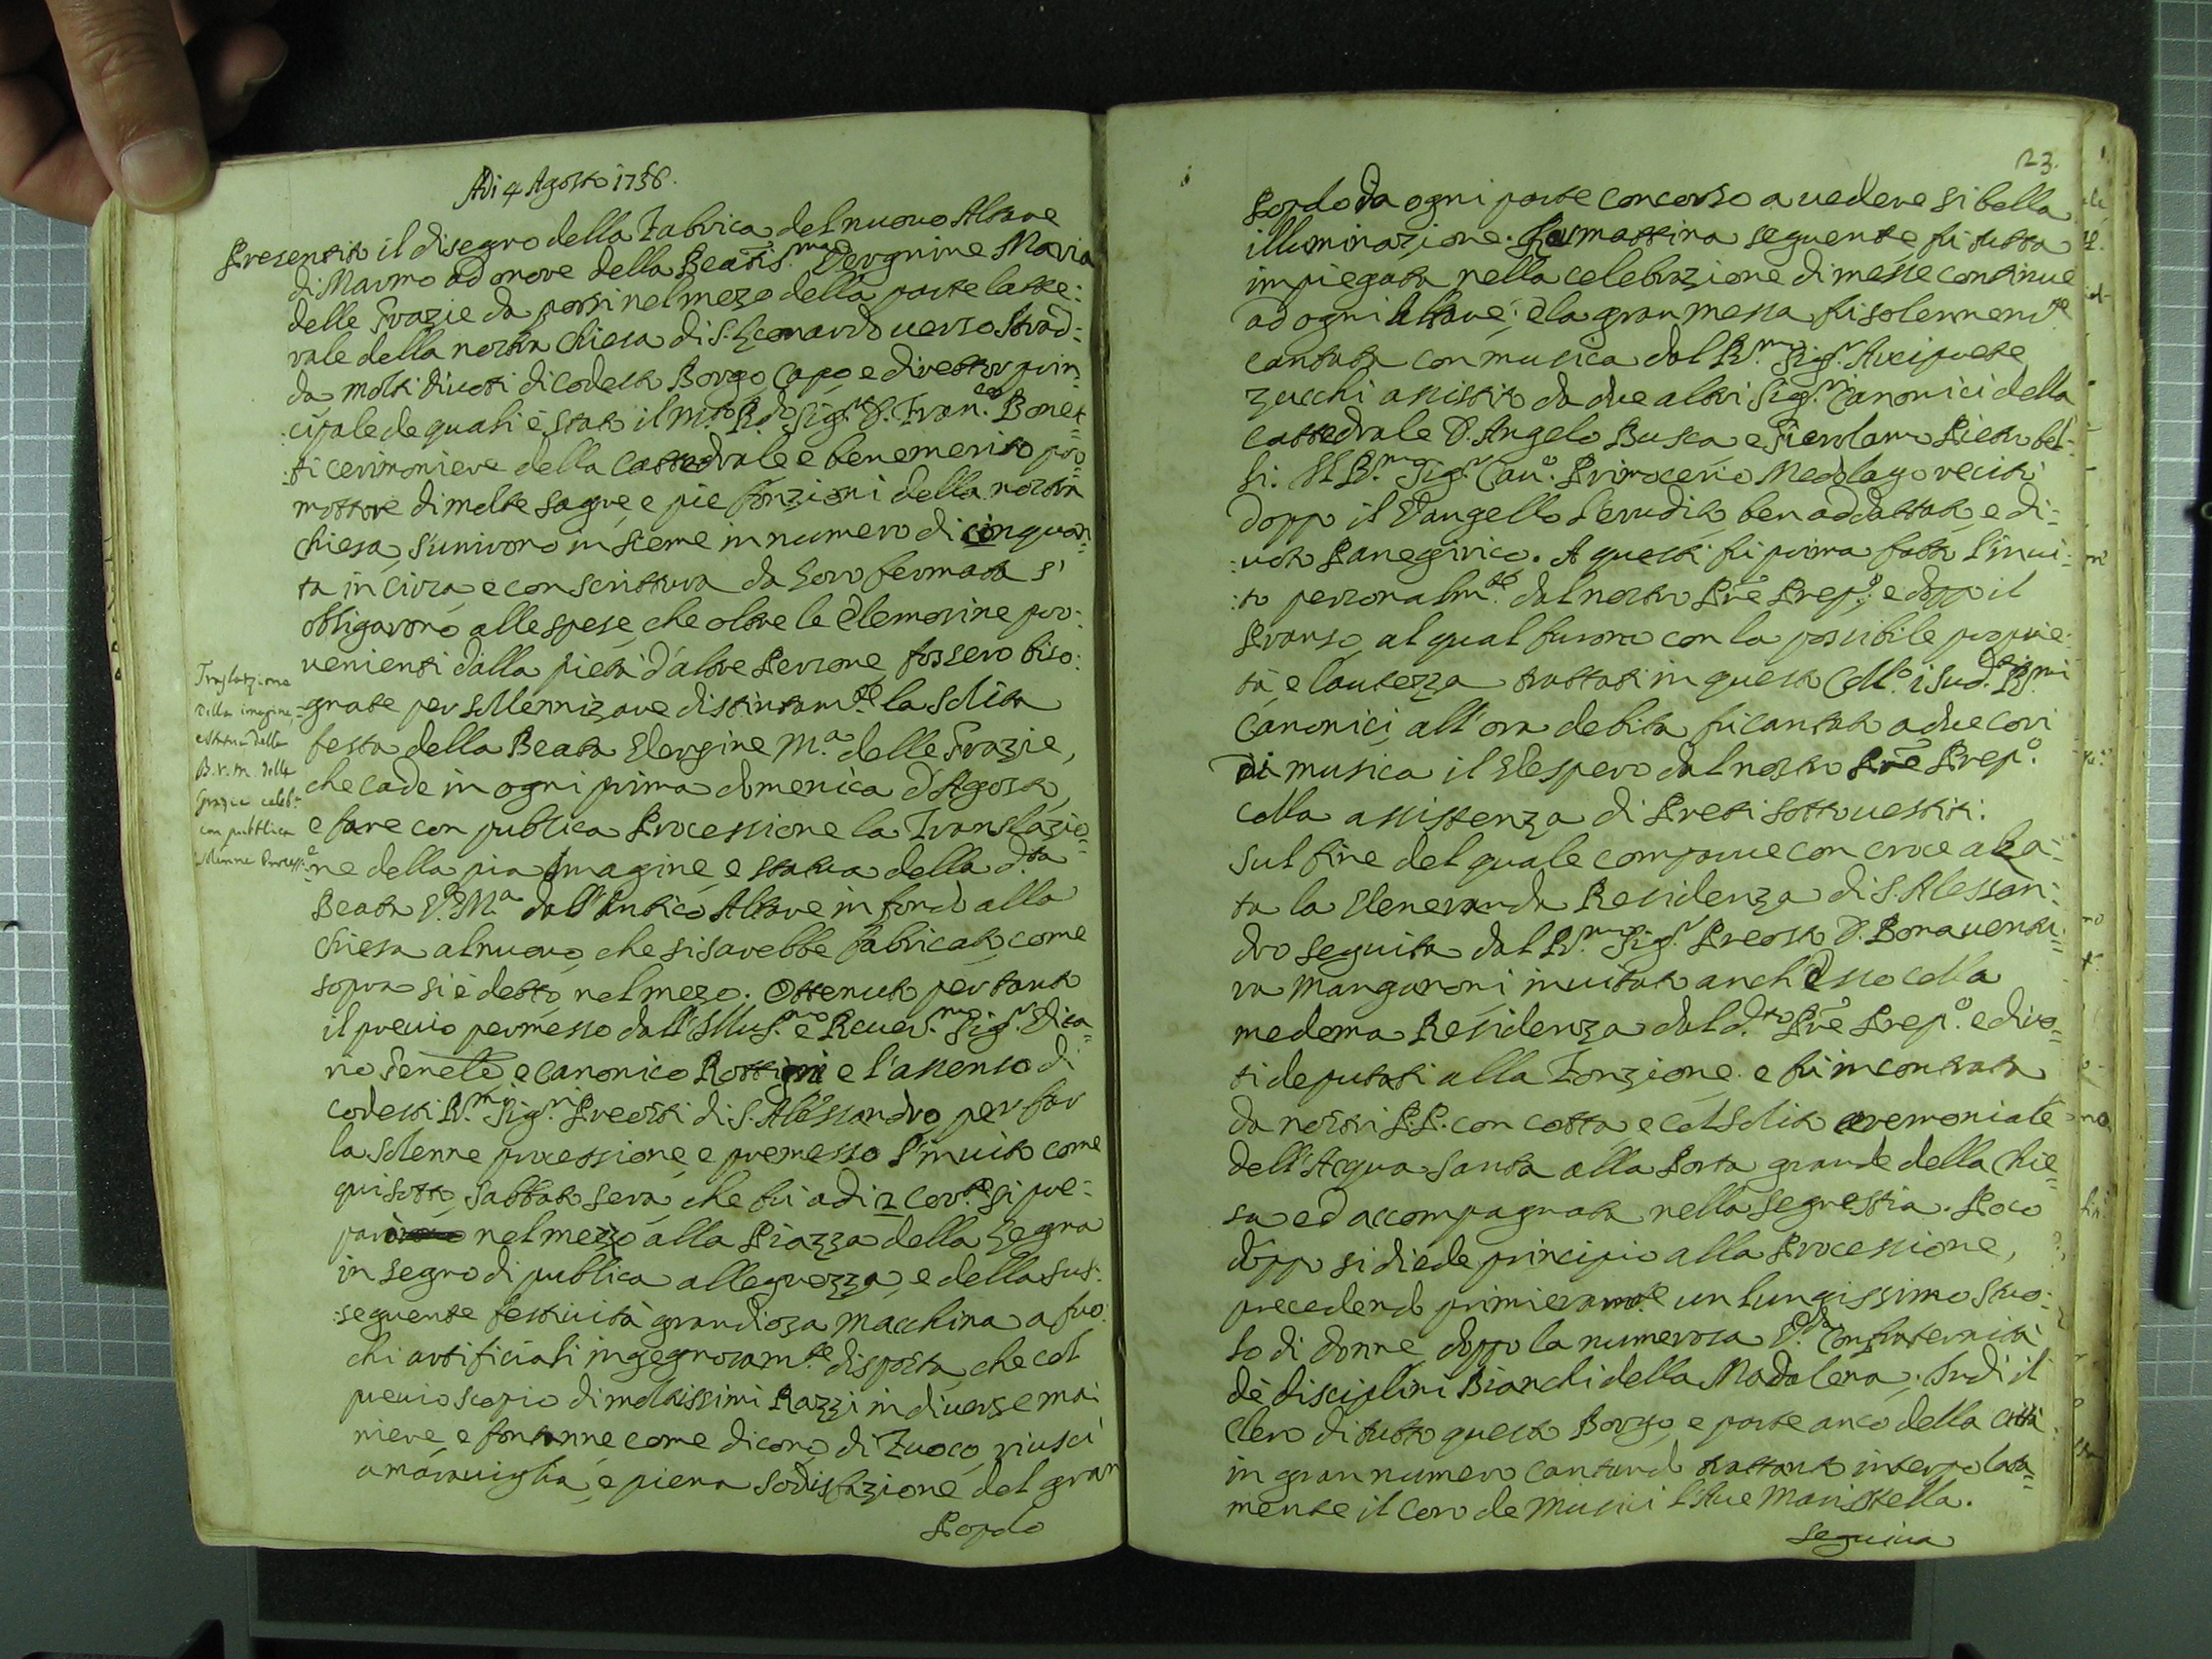 Adi 4 Agosto 1736.
Presentito il disegno della Fabrica del nuovo Altare
di Marmo ad onore della Beatis.ma Vergnine Maria
delle Grazie da porsi nel mezo della parte latte:
rale della nostra Chiesa di S. Leonardo verso Strad:
da molti divoti di codesto Borgo, Capo e direttor prin:
:cipale de quali è stato il M.to R.do Sig.r D. Fran.co Bonet
:ti cerimoniere della Cattedrale e benemerito pro=
mottore di molte sagre, e pie fonzioni della nostra
Chiesa, s'unirono insieme in numero di cinquan=
ta in circa, e con scrittura da loro fermata s'
obligarono alle spese, che oltre le Elemosine pro:
venienti dalla pietà d'altre Persone, fossero biso:
=gnate per sollennizare distintam.te la solita
festa della Beata Vergine M.a delle Grazie,
che cade in ogni prima domenica d'Agosto,
e fare con publica Processione la Translazio=
=ne della pia Imagine, e statua della d.ta
Beata V. M.a dall'Antico Altare in fondo alla
Chiesa al nuovo, che si sarebbe fabricato, come
sopra si è detto, nel mezo. Ottenuto pertanto
il previo permesso dall'Illus.mo e Rever.mo Sig.r Vica=
rio Genele e Canonico Rottigni e l'assenso di
codesti R.mi Sig.ri Preosti di S. Alessandro, per far
la solenne processione, e premesso l'invito come
qui sotto, sabbato sera, che fu adi 2 cor.te si pre=
parò nel mezzo alla Piazza della Legna
in segno di publica allegrezza, e della sus:
:seguente festività grandiosa macchina a fuo:
chi artificiali ingegnosam.te disposta, che col
previo scopio di moltissimi Razzi in diverse ma
niere, e fontanne come dicono, di Fuoco, riuscì
a maraviglia, e piena sodisfazione del gran
Popolo
Traslatzione
della imagine
e statua della
B. V. M. delle
Grazie celeb.ta
con pubblica
solenne Process.e
23.
Popolo da ogni parte concorso a vedere si bella
illuminazione. La mattina seguente fu tutta
impiegata nella celebrazione di messe continue
ad ogni Altare; e la gran messa fu solennem.te
cantata con musica dal R.mo Sig.r Arciprete
Zucchi assistito da due altri Sig.ri Canonici della
Cattedrale D. Angelo Busca e Gierolamo Pietro bel=
li. Il R.mo Sig.r Can.o Primocerio Medolago recitò
doppo il Vangello l'erudito ben addattato, e di:
:voto Panegirico. A questi fu prima fatto l'invi:
:to personalm.te dal nostro Pre Prep.o; e doppo il
Pranso, al qual furono con la possibile proprie:
tà e lautezza trattati in questo Coll.o i sud.ti R.mi
Canonici, all'ora debita fu cantato a due cori
di musica il Vespero dal nostro Pre Prep.o
colla assistenza di Preti sottovestiti.
Sul fine del quale comparve con croce alza=
ta la Veneranda Residenza di S. Alessan:
dro seguita dal R.mo Sig.r Preosto D. Bonaventu:
ra Mangaroni invitato anch'Esso colla
medema Residenza dal d.to Pre Prep.o e divo=
ti deputati alla Fonzione. e fu incontrata
da nostri P.P. con cotta, e col solito ceremoniale
dell'Acqua Santa alla Porta grande della Chie=
sa ed accompagnata nella segrestia. Poco
doppo si diede principio alla Processione,
precedendo primieramte un lungissimo stuo:
lo di donne doppo la numerosa V.da Confraternità
dè disciplini Bianchi della Madalena. Indi il
Clero di tutto questo Borgo, e parte anco della Città
in gran numero cantando trattanto interpolata=
mente il coro de Musici l'Ave Maristella.
seguiva